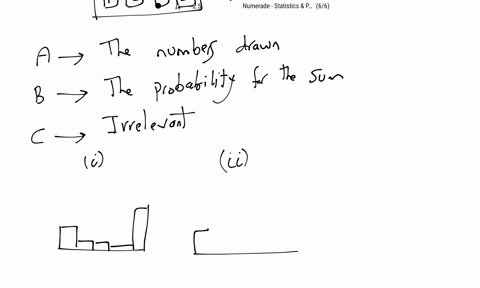 Numerade - Statistics & P... (6/6)
A → The numbers drawn
B → The probability for the sum
C → Irrelevant
(i) (ii)